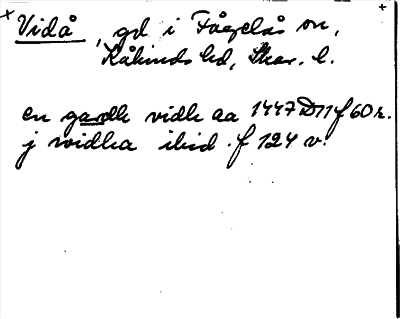 Vidå, gd i Fågelås sn,
Kåkinds hd, Skar. l.
en gardh vidh aa 1447 D 11 f 60 r.
j widha ibid. f 124 v.